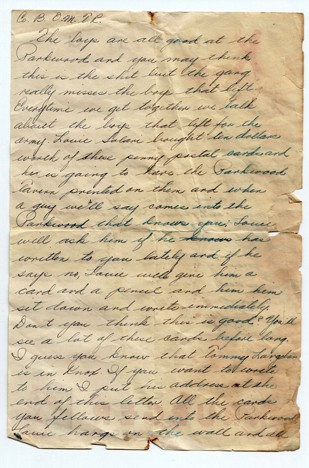 The boys are all good at the
Parkwood and you may think
this is the shit but the gang
really misses the boys that left.
Everytime we get together we talk
about the boys that left for the
army. Louie Solan bought ten dollars
worth of these penny postal cards and
he is going to have the Parkwood
tavern printed on them and when
a guy we'll say comes into the
Parkwood that knows you, Louie
will ask him if he knows has
written to you lately and if he
says no, Louie will give him a
card and a pencil and him him
set down and write immediately
Don't you think this is good? You'll
see a lot of these cards before long.
I guess you know that Tommy
is in Knox. If you want to write
to him I put his address at the
end of this letter. All the cards
you fellows send into the Parkwood
Louie hangs on the wall and all